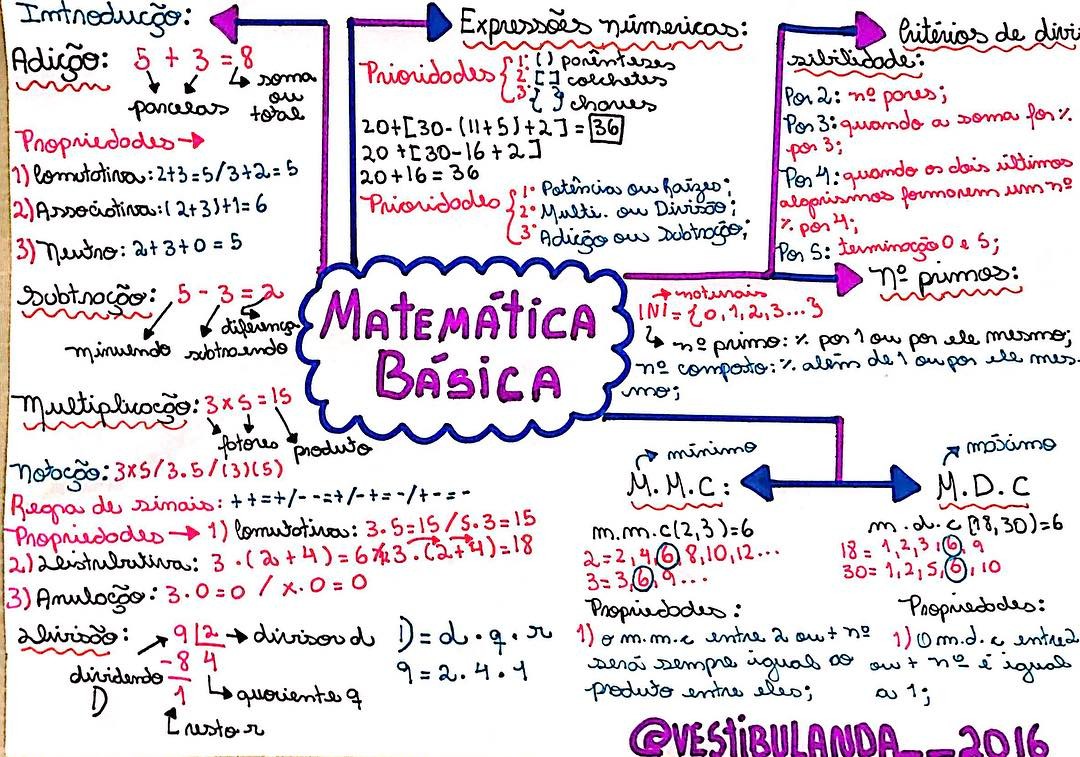 Introdução:
Adição: 5 + 3 = 8
parcelas
soma
ou
total
Propriedades →
1) Comutativa: 2+3=5/3+2=5
2) Associativa: (2+3)+1=6
3) Neutro: 2+3+0=5
Subtração: 5 - 3 = 2
minuendo
subtraendo
diferença
Multiplicação: 3x5=15
fatores
produto
Notação: 3x5/3.5/(3)(5)
Regra de sinais: ++=+/--=+/-+=-/+-=-
Propriedades → 1) Comutativa: 3.5=15/5.3=15
2) Distributiva: 3.(2+4)=6 3.(2+4)=18
3) Anulação: 3.0=0 / x.0=0
Divisão:
9 |2 → divisor d
-8 4
1
dividendo
D
quociente q
resto r
D = d . q . r
9 = 2 . 4 . 1
Expressões númericas:
Prioridades
1º () parênteses
2º [] colchetes
3º { } chaves
20+[30-(11+5)+2] = 36
20+[30-16+2]
20+16=36
Prioridades
1º Potência ou Raízes;
2º Multi. ou Divisão;
3º Adição ou Subtração;
MATEMÁTICA
BÁSICA
Critérios de divi
sibilidade:
Por 2: nº pares;
Por 3: quando a soma for %
por 3;
Por 4: quando os dois últimos
algarismos formarem um nº
% por 4;
Por 5: terminação 0 e 5;
Nº primos:
→ naturais
IN = {0,1,2,3...}
nº primo: % por 1 ou por ele mesmo;
nº composto: % além de 1 ou por ele mes-
mo;
mínimo
M.M.C:
m.m.c(2,3)=6
2=2,4,6,8,10,12...
3=3,6,9...
Propriedades:
1) o m.m.c entre 2 ou + nº
será sempre igual ao
produto entre eles;
máximo
M.D.C
m.d.c (18,30)=6
18=1,2,3,6,9
30=1,2,5,6,10
Propriedades:
1) O m.d.c entre 2
ou + nº é igual
a 1;
@VESTIBULANDA__2016